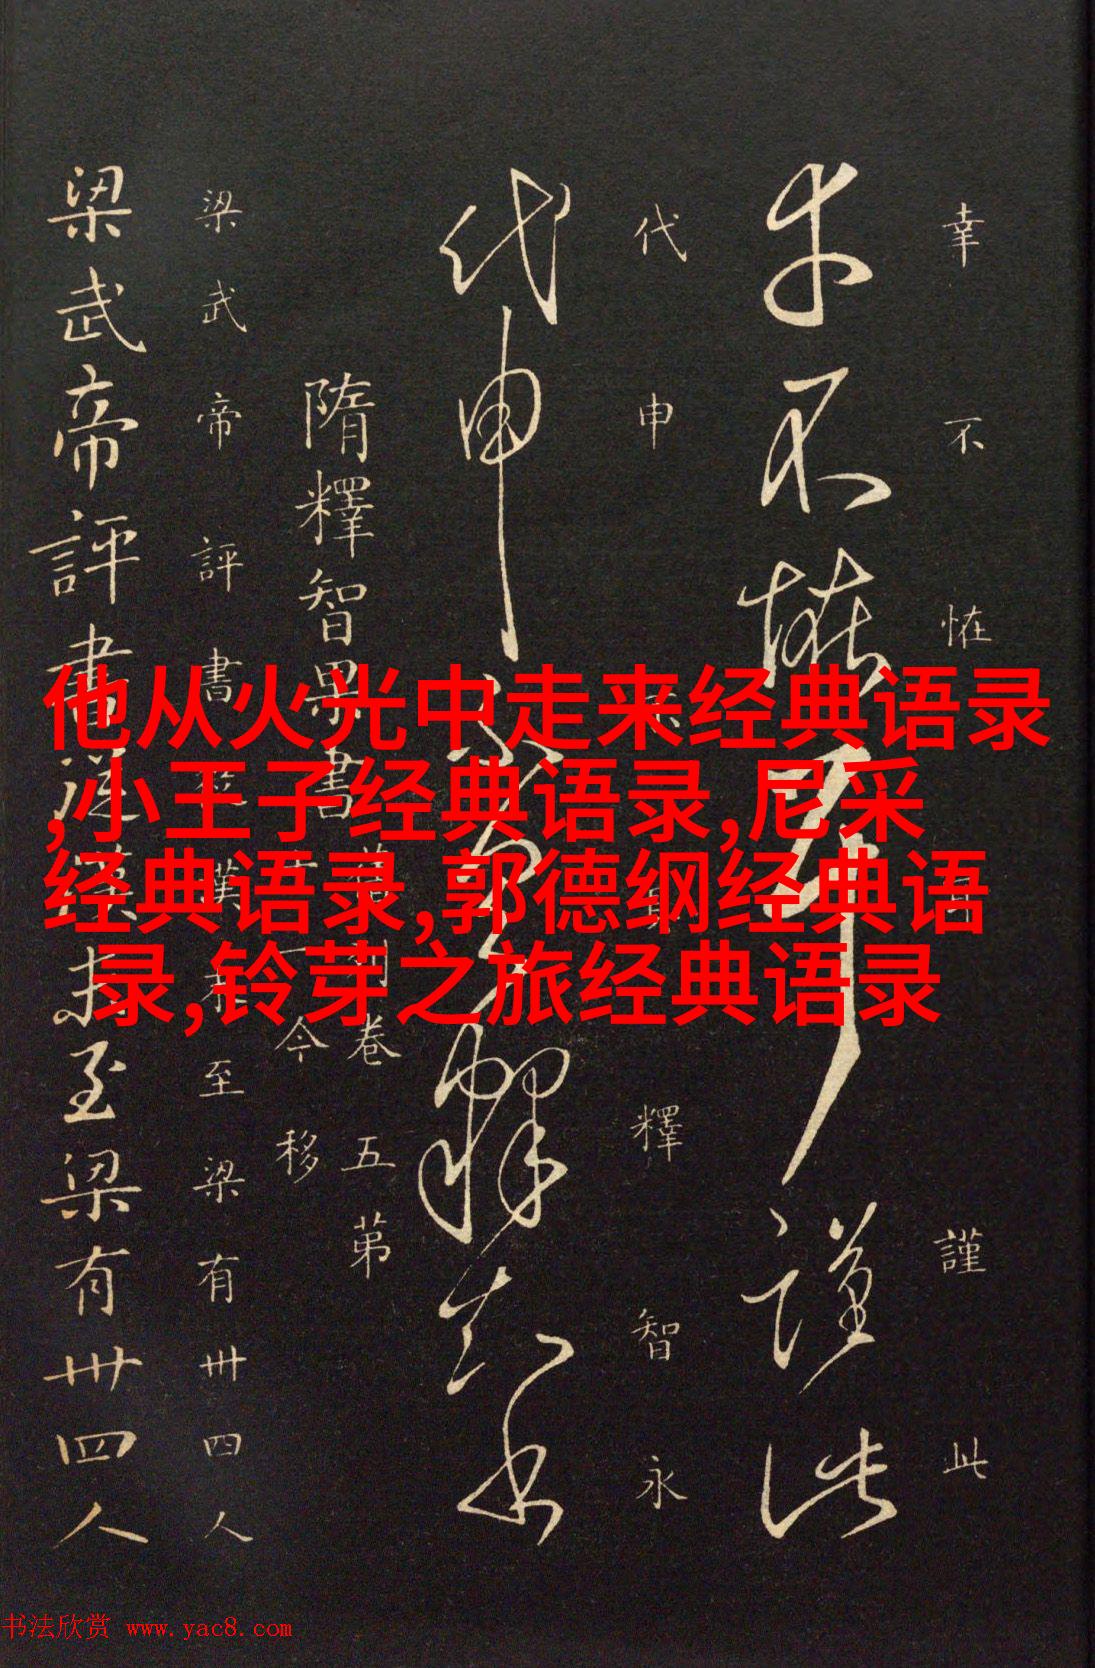 幸不恠耳謹此
代申
釋智永
隋釋智果書
卷五第
今移
梁武帝評書從漢末至梁有卅四人
梁武帝評書從漢末至梁有卅四人
他从火光中走来经典语录
,小王子经典语录,尼采
经典语录,郭德纲经典语
录,铃芽之旅经典语录
书法欣赏 www.yac8.com